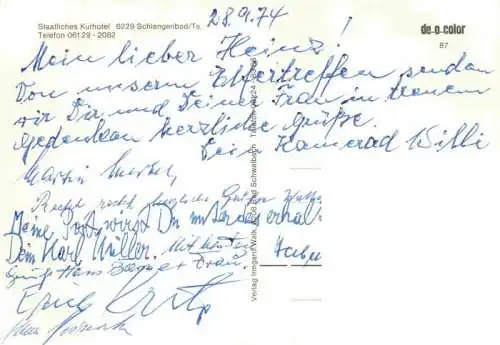 Staatliches Kurhotel 6229 Schlangenbad/Ts.
Telefon 06129 - 2082
28.9.74
de-o-color
87
Mein lieber Heinz!
Von unserem Elfertreffen senden
wir Dir und Deiner Frau in treuem
Gedenken herzliche Grüße.
Dein Kamerad Willi
Martin
Recht herzliche Grüße
Meine Post wirst Du unterdes erhal.
Dein Karl Müller. Mit besten
Grüß Hans Frau.
Erich
Verlag Irmgard Walk, 6208 Bad Schwalbach